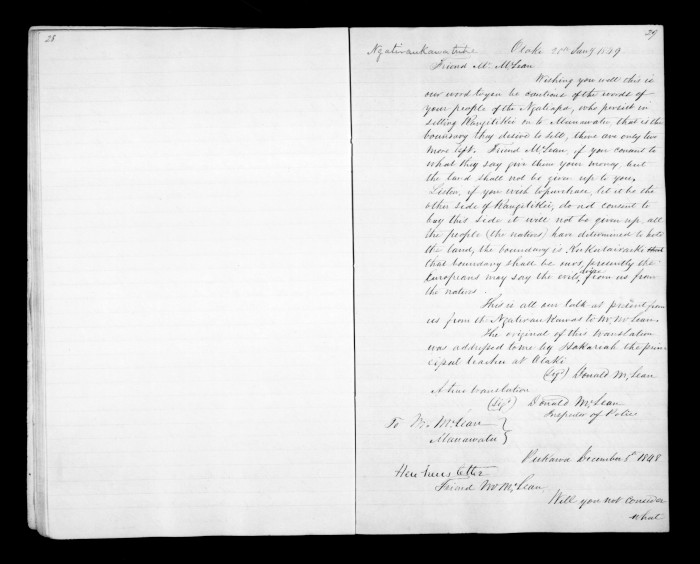 28
29
Ngatiraukawatribe Otaki 20th Jany 1849
Friend Mr McLean
Wishing you well this is
our word to you be cautious of the words of
your people of the Ngatiapa, who persist in
selling Rangitikei on to Manawatu that is the
boundary they desire to sell, there are only two
more left. Friend McLean if you consent to
what they say give them your money, but
the land shall not be given up to you.
Listen, if you wish to purchase, let it be the
other side of Rangitikei, do not consent to
buy this side it will not be given up, all
the people (the natives) have determined to hold
the land, the boundary is
that boundary shall be ours, presently the
Europeans may say the evils, from us from
the natives.
This is all our talk at present from
us from the Ngatiraukawas to Mr. McLean.
The original of this translation
was addressed to me by Hakariah the prin
cipal teacher at Otaki
(Sigd) Donald McLean
A true translation
(Sigd) Donald McLean
Inspector of Police
To Mr. McLean
Manawatu
December 8th 1848
letter
Friend Mr McLean,
Will you not consider
what